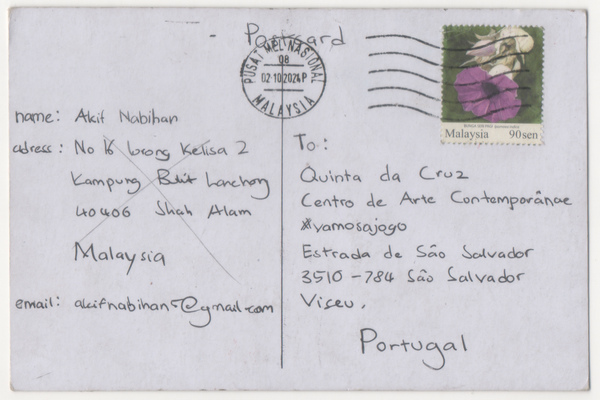 - Postcard
PUSAT MEL NASIONAL
08
02 10 2024 P
MALAYSIA
Malaysia 90sen
name: Akif Nabihan
adress: No 16 lorong Kelisa 2
Kampung Bukit Lanchong
40406 Shah Alam
Malaysia
email: akifnabihan5@gmail.com
To:
Quinta da Cruz
Centro de Arte Contemporânae
*vamosajogo
Estrada de São Salvador
3510-784 São Salvador
Viseu,
Portugal